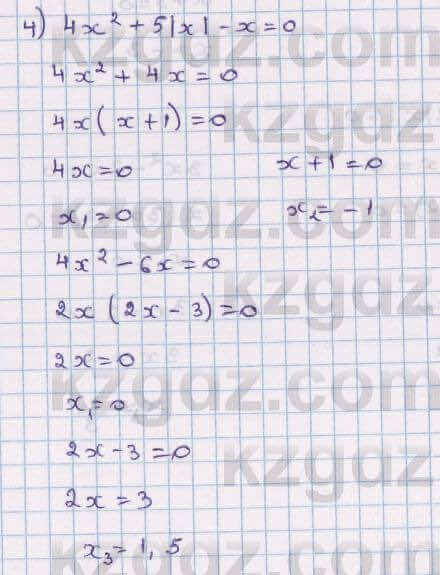 4) 4x² + 5|x| - x = 0
4x² + 4x = 0
4x(x+1) = 0
4x = 0 x + 1 = 0
x₁ = 0 x₂ = -1
4x² - 6x = 0
2x (2x - 3) = 0
2x = 0
x₁ = 0
2x - 3 = 0
2x = 3
x₃ = 1,5
kzgdz.com
kzgdz.com
kzgdz.com
kzgdz.com
kzgdz.com
kzgdz.com